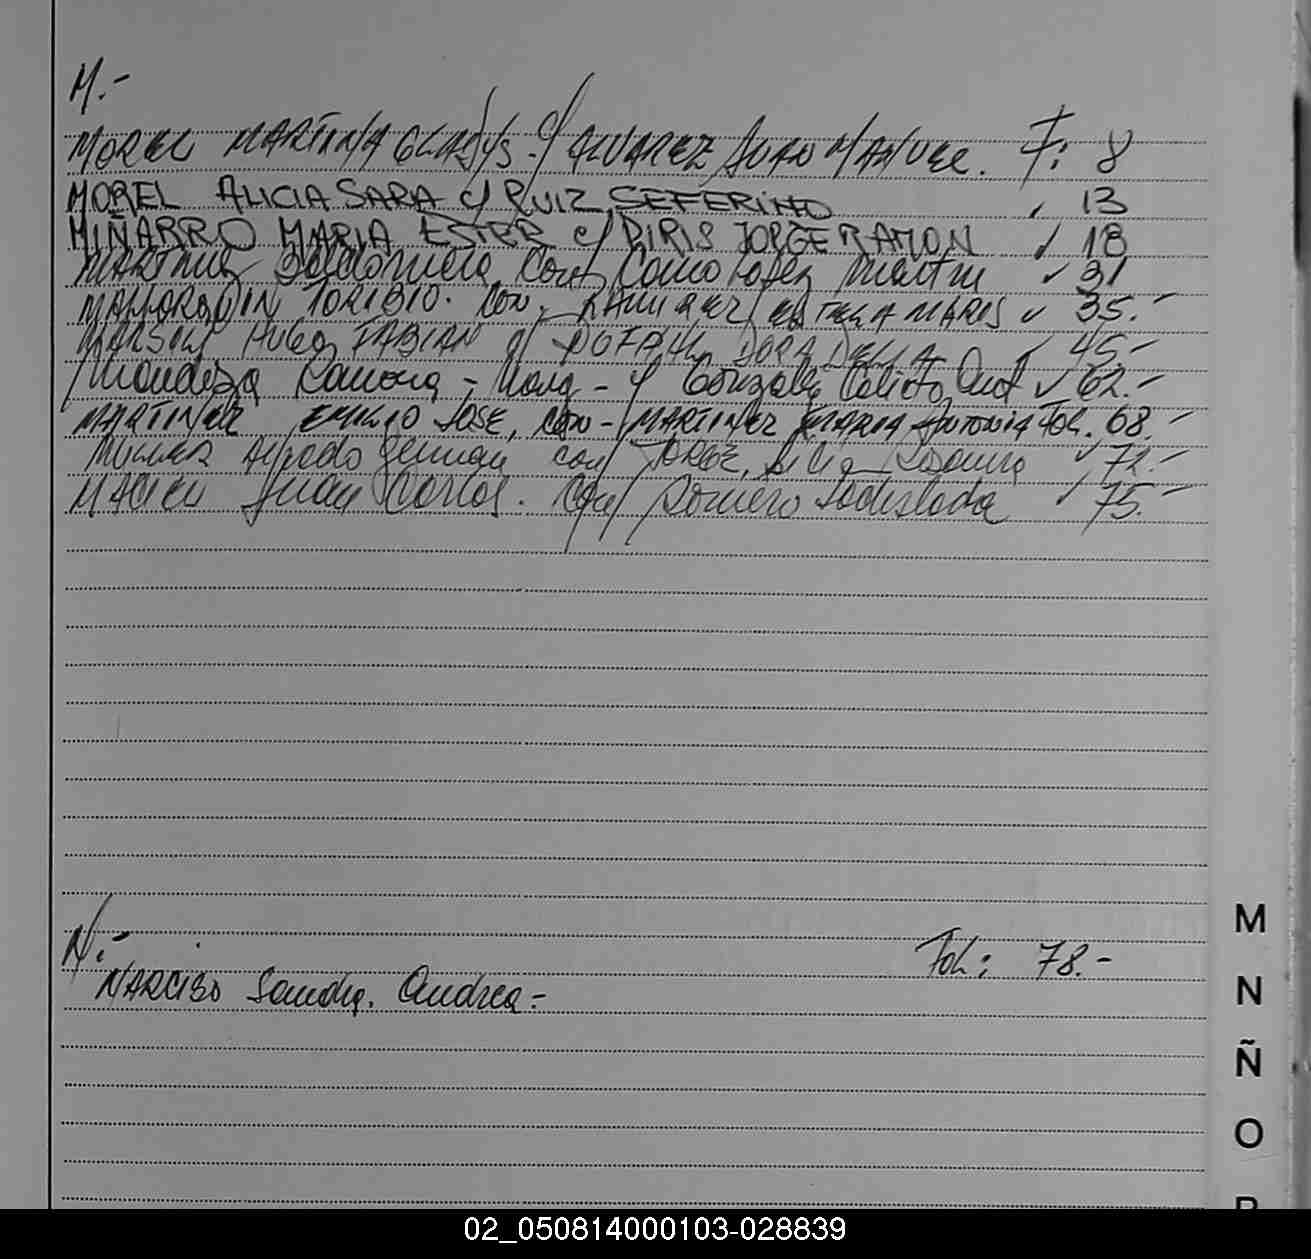 M.-
MOREL MARTINA GLADYS - c/ ALVAREZ JUAN MANUEL. F: 8
MOREL ALICIA SARA c/ RUIZ SEFERINO 13
MIÑARRO MARIA ESTER c/ PIRIS JORGE RAMON 18
MARTINEZ con Cano Lopez Martin 31
TORIBIO. con. RAMIREZ ESTELA MARIS 35.-
HUGO FABIAN c/ DORA DELIA 45.-
Mendoza Ramona - c/ Gonzalez Calixto 62.-
MARTINEZ EMILIO JOSE, con - MARTINEZ MARIA Antonia Fol. 68.-
Alfredo German con JORGE, Rosaura 72.-
MACIEL Juan Carlos. con Romero Ladislada 75.-
N.-
NARCISO Sandra. Andrea - Fol: 78.-
M
N
Ñ
O
P
02_050814000103-028839